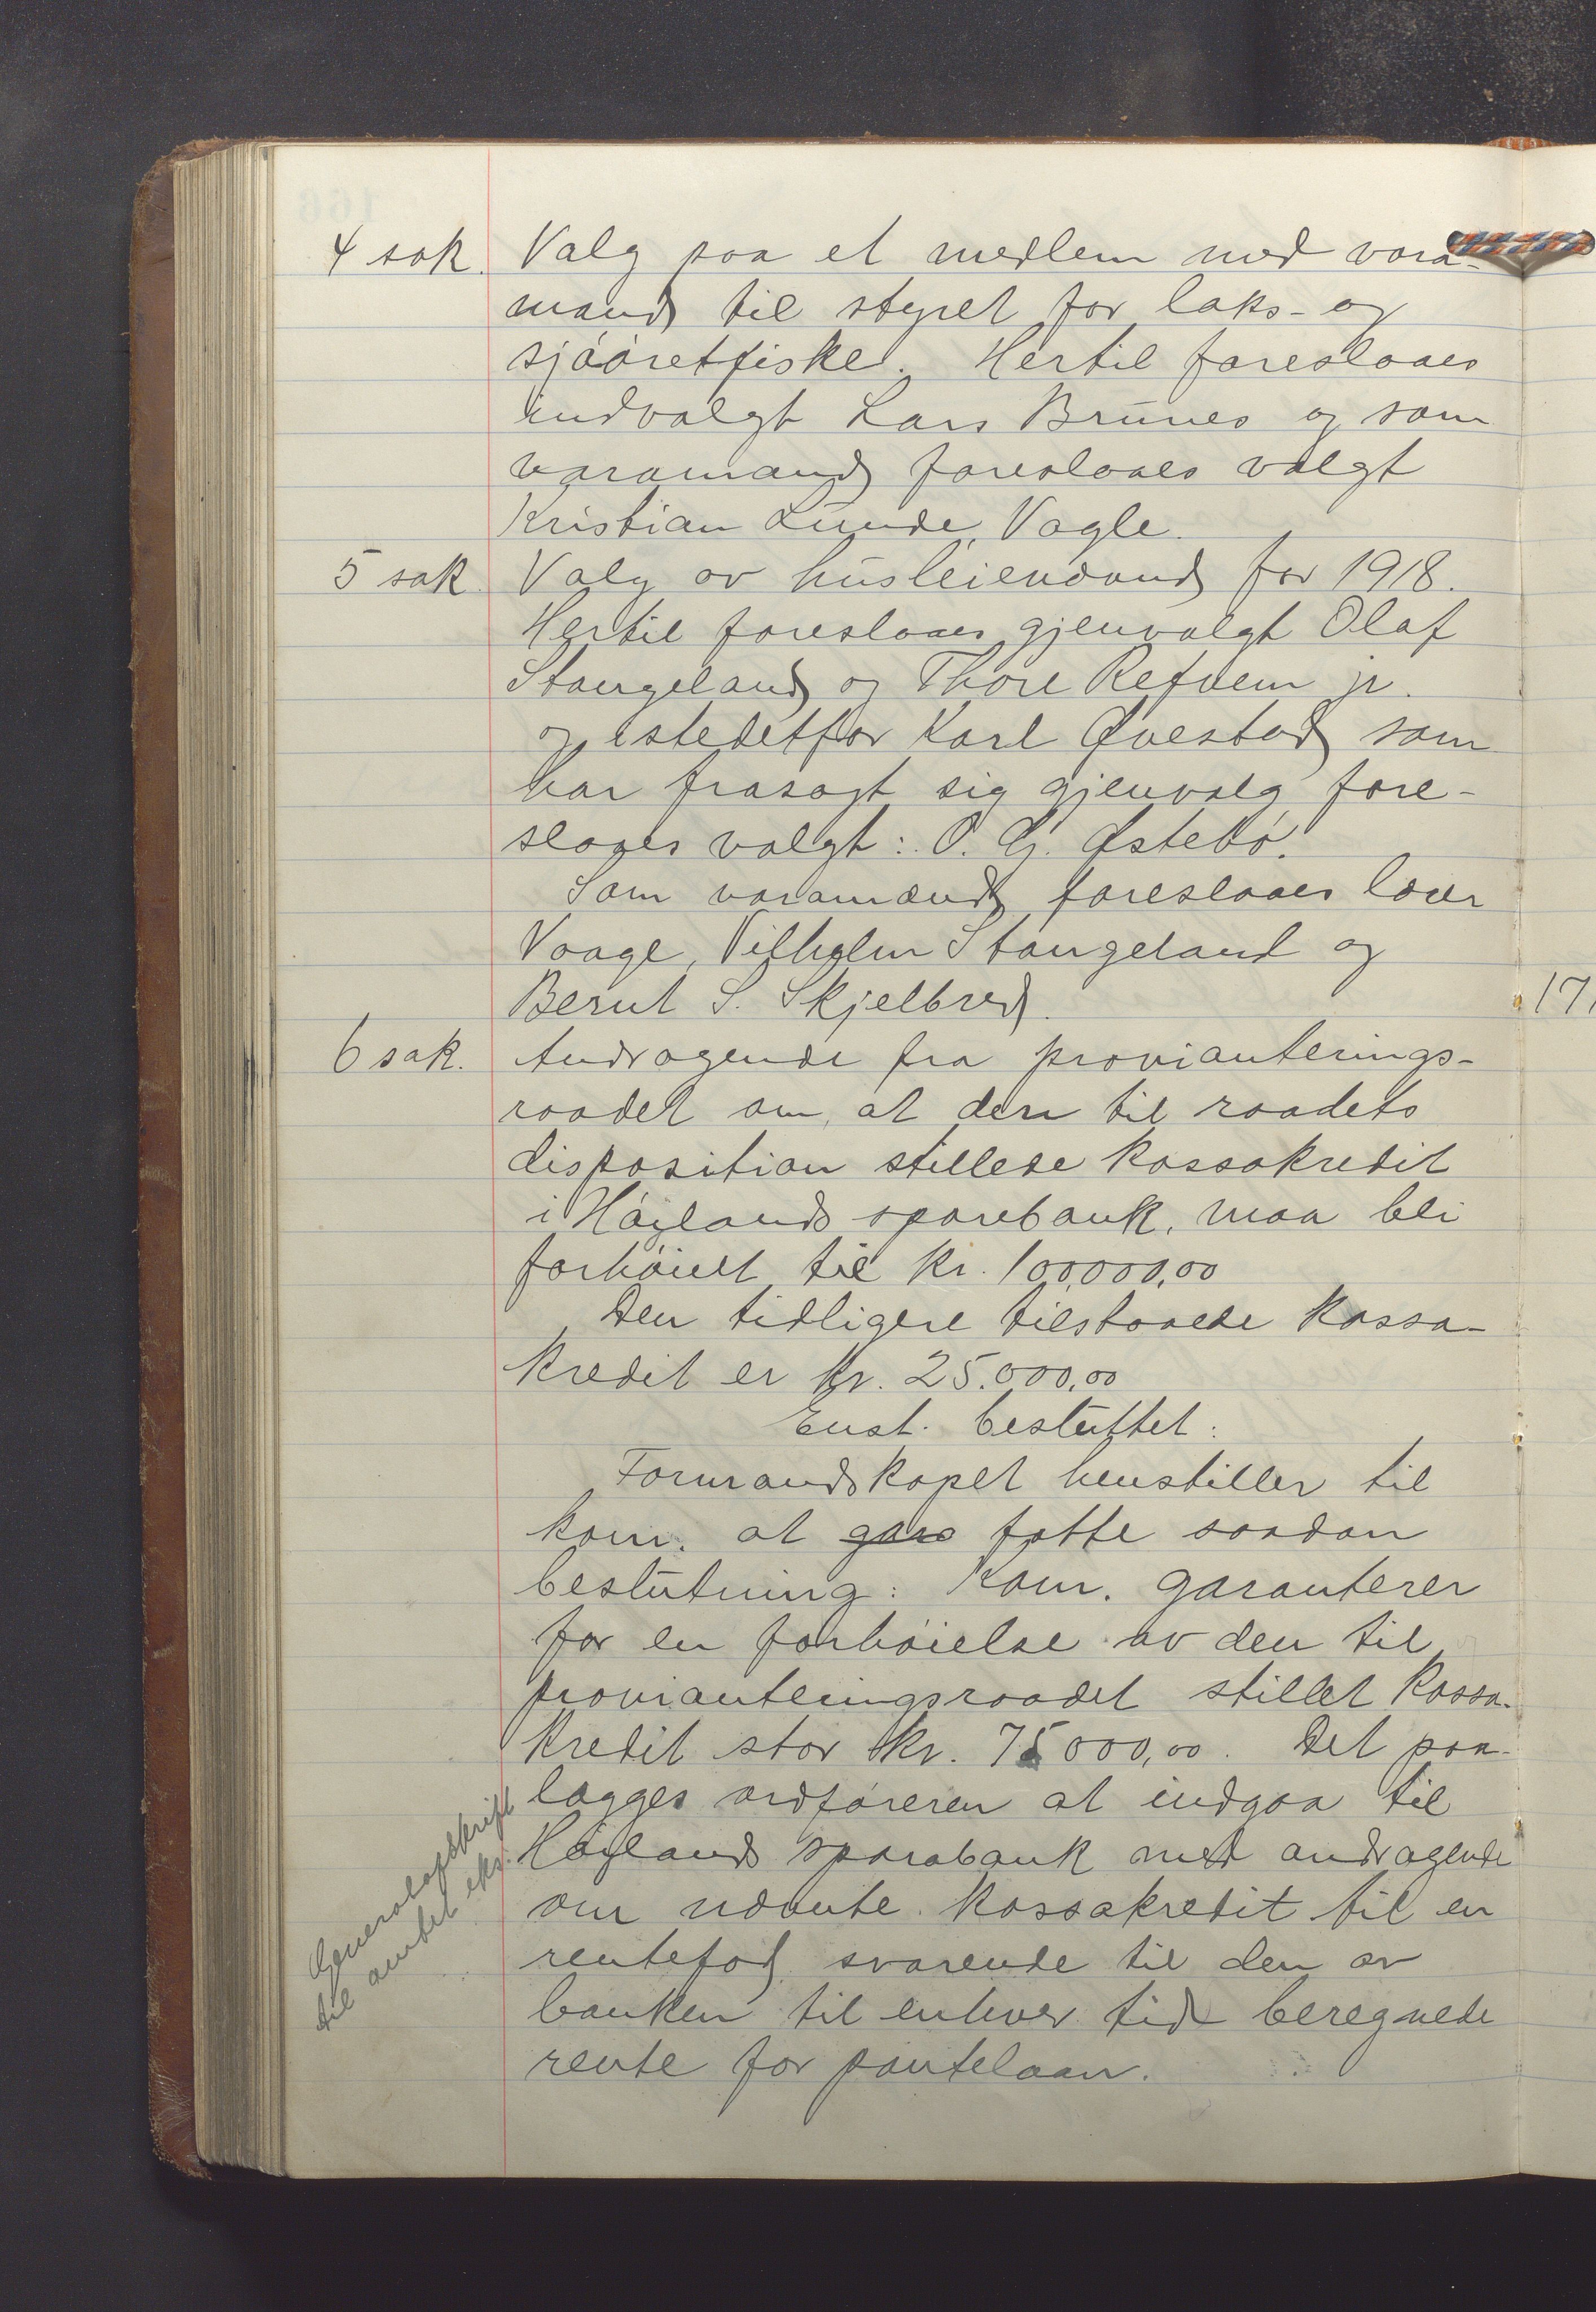 4 sak. Valg paa et medlem med vara-
mand til styret for laks- og
sjøøretfiske. Hertil foreslaaes
indvalgt Lars Brunes og som
varamand foreslaaes valgt
Kristian Lunde, Vagle.
5 sak. Valg av husleienævnd for 1918.
Hertil foreslaaes gjenvalgt Olaf
Stangeland og Thore Refvem jr.
og istedetfor Karl Øvestad som
har frasagt sig gjenvalg fore-
slaaes valgt: O. G. Østebø.
Som varamænd foreslaaes lærer
Vaage, Vilhelm Stangeland og
Bernt S. Skjelbred.
6 sak. Andragende fra provianterings-
raadet om, at den til raadets
disposition stillede kassakredit
i Høylands sparebank, maa bli
forhøiet til kr. 100,000,00
Den tidligere tilstaaede kassa-
kredit er kr. 25.000,00
Enst. besluttet:
Formandskapet henstiller til
kom. at gara fatte saadan
beslutning: Kom. garanterer
for en forhøielse av den til
provianteringsraadet stillet kassa-
kredit stor kr. 75000,00. Det paa-
lægges ordføreren at indgaa til
Høylands sparebank med andragende
om nævnte kassakredit til en
rentefod svarende til den av
banken til enhver tid beregnede
rente for pantelaan.
Generalafskrift
til amtet eks.
166
17